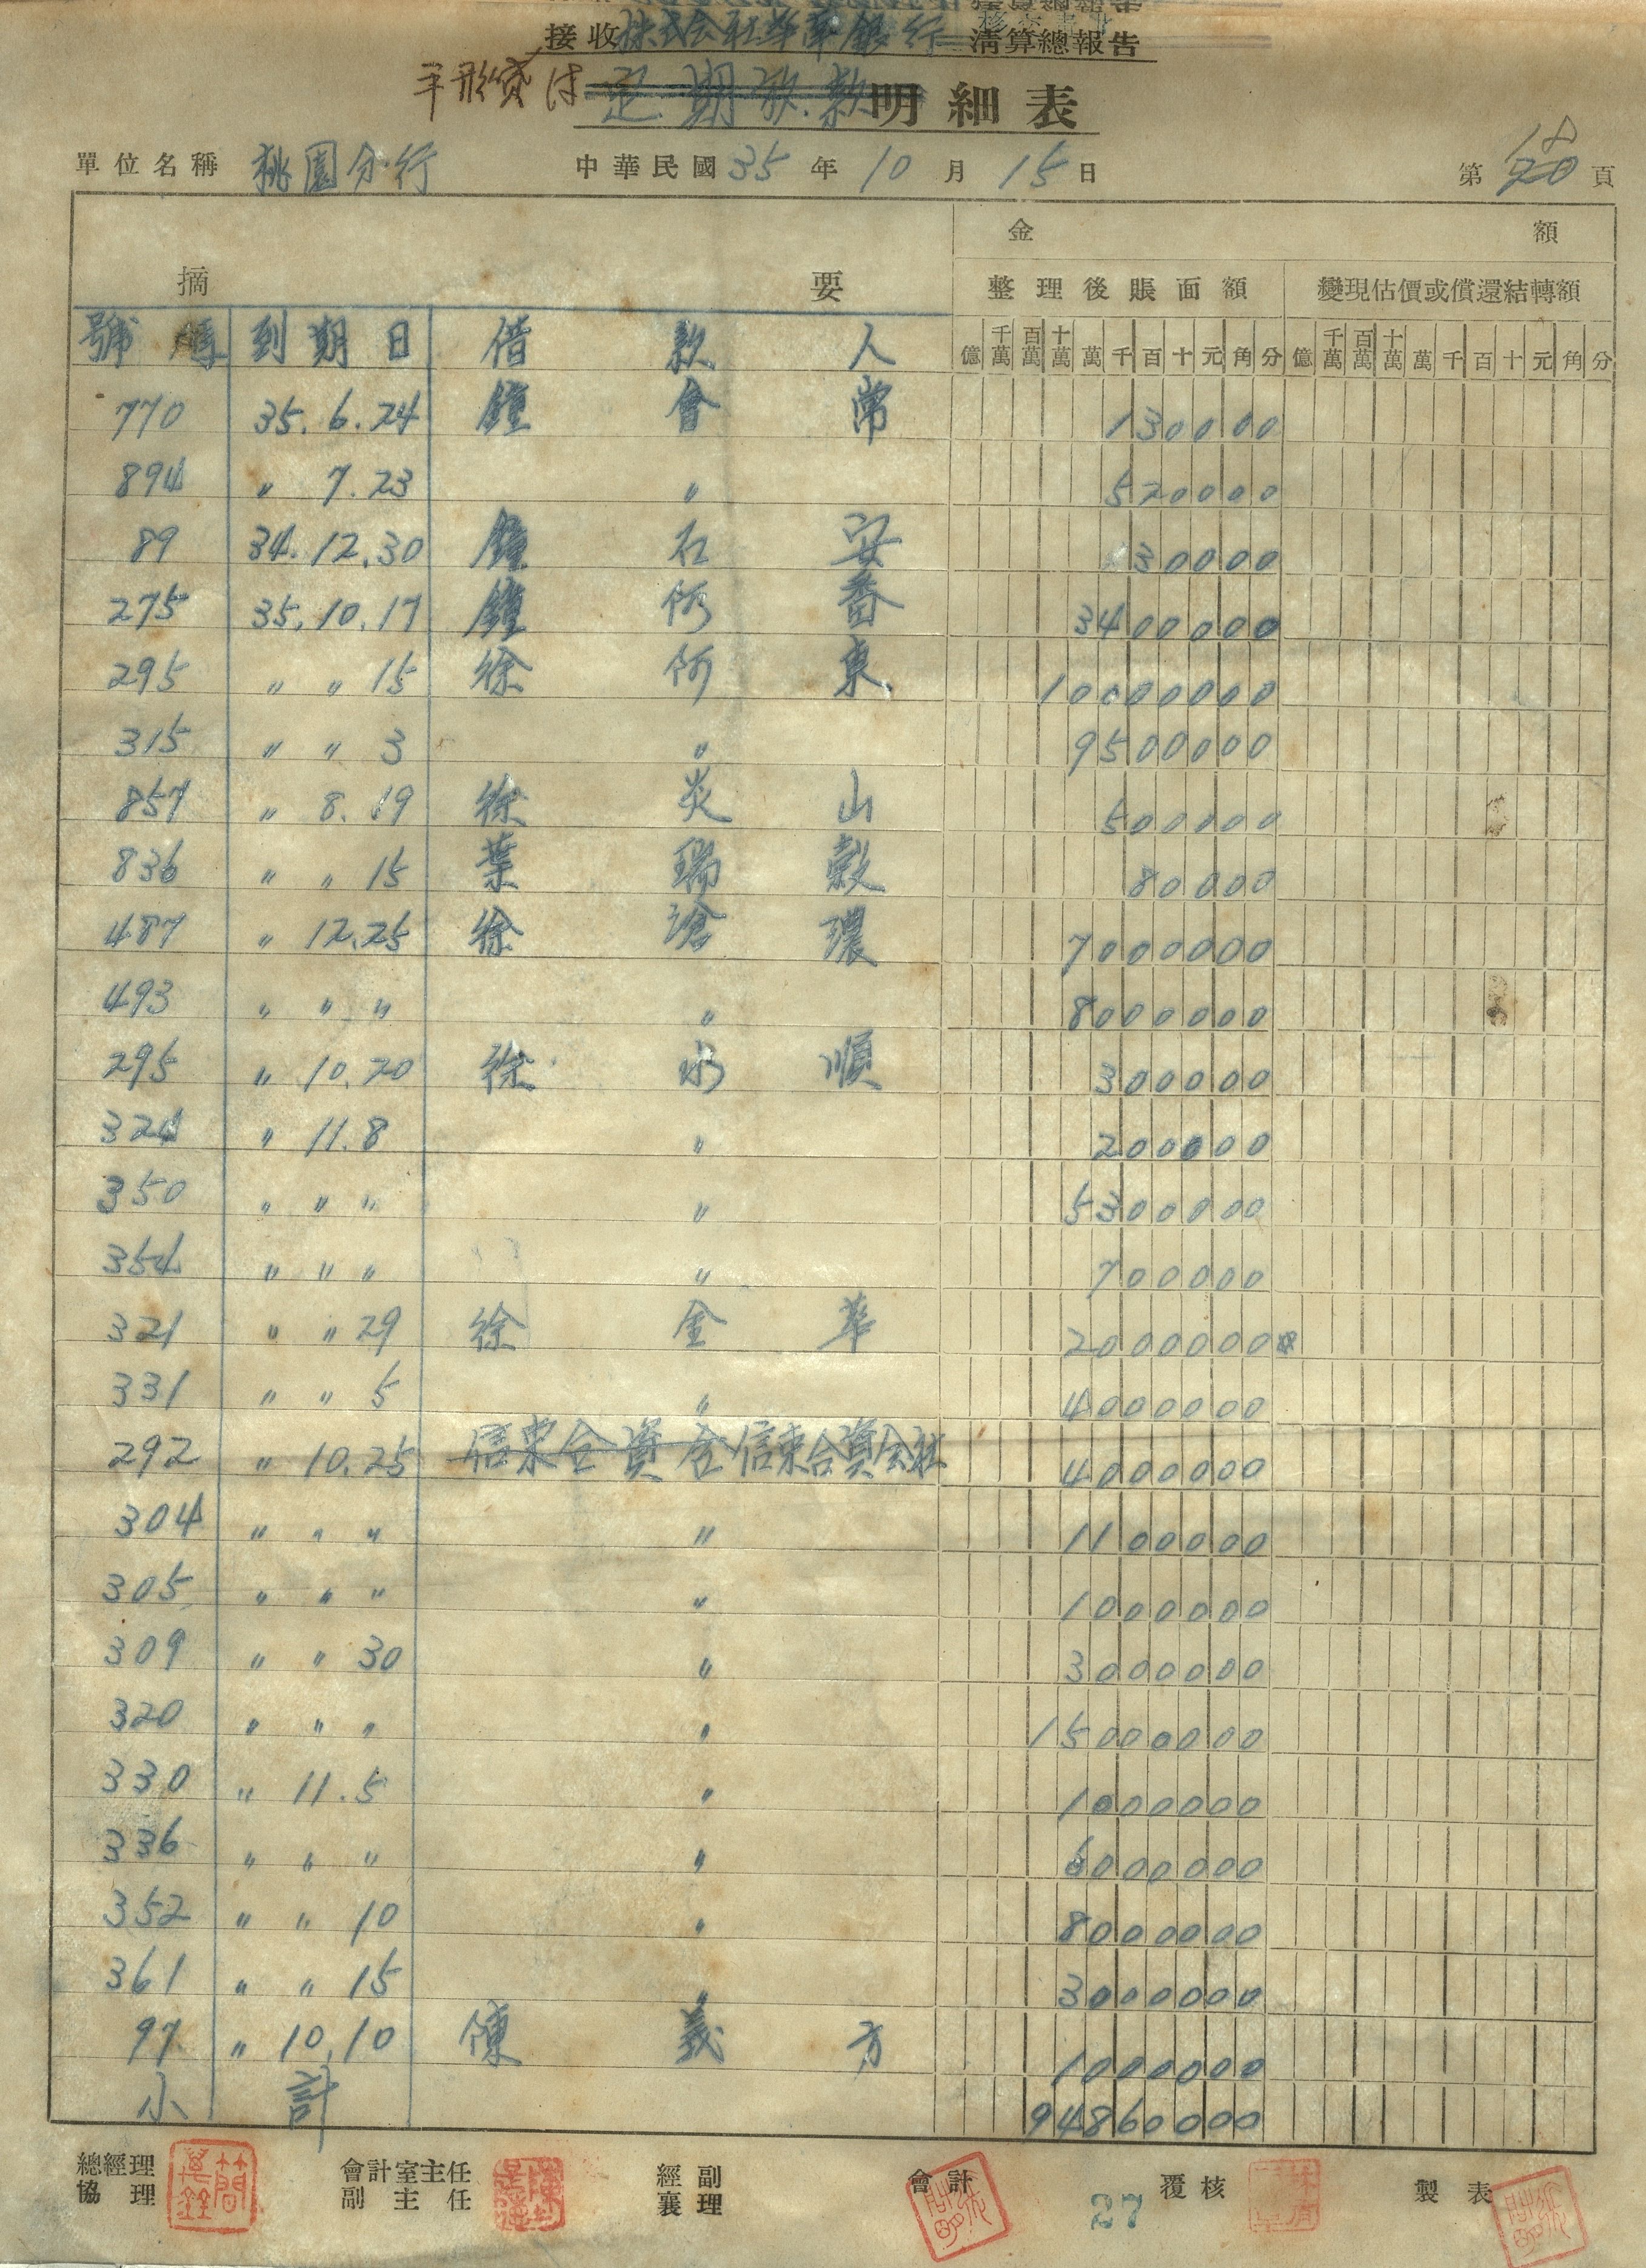 接收株式会社華南銀行清算總報告
手形貸付 定期放款 明細表
單位名稱 桃園分行 中華民國35年10月15日 第18頁
金額
摘要 整理後賬面額 變現估價或償還結轉額
億 千萬 百萬 十萬 萬 千 百 十 元 角 分 億 千萬 百萬 十萬 萬 千 百 十 元 角 分
號碼 到期日 借款人
770 35.6.24 鍾會常 130000
894 〃 7.23 〃 520000
89 34.12.30 鍾石安 30000
275 35.10.17 鍾阿番 3400000
295 〃 〃 15 徐阿東 10000000
315 〃 〃 3 〃 9500000
857 〃 8.19 徐炎山 500000
836 〃 〃 15 葉瑞穀 80000
487 〃 12.25 徐滄濃 7000000
493 〃 〃 〃 〃 8000000
295 〃 10.20 徐永順 300000
324 〃 11.8 〃 200000
350 〃 〃 〃 〃 5300000
354 〃 〃 〃 〃 700000
321 〃 〃 29 徐金華 2000000
331 〃 〃 5 〃 4000000
292 〃 10.25 信東合資会 信東合資会社 4000000
304 〃 〃 〃 〃 1100000
305 〃 〃 〃 〃 1000000
309 〃 〃 30 〃 3000000
320 〃 〃 〃 〃 15000000
330 〃 11.5 〃 1000000
336 〃 〃 〃 〃 6000000
352 〃 〃 10 〃 8000000
361 〃 〃 15 〃 3000000
97 〃 10.10 陳義方 1000000
小計 94860000
總經理 協理 會計室主任 副主任 經副襄理 會計 覆核 製表
27